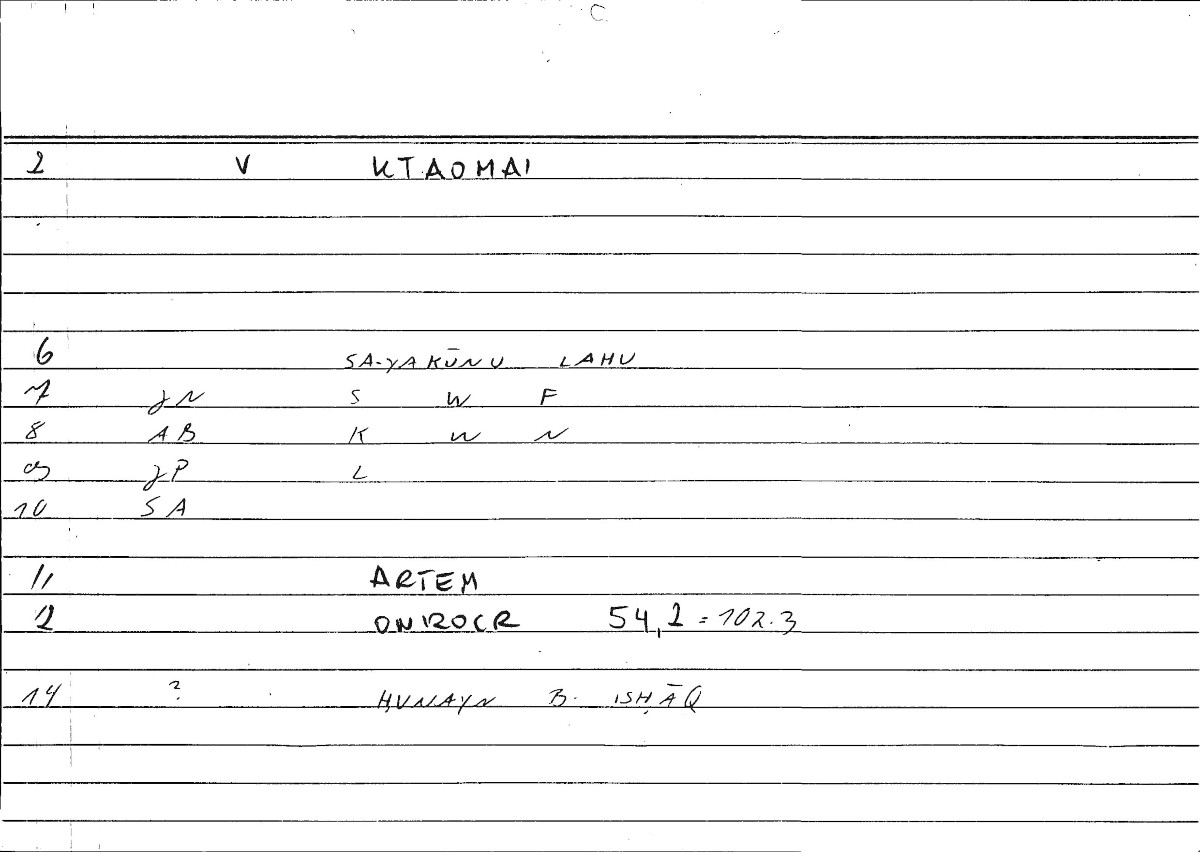 C
2 V KTAOMAI
6 SA-YAKŪNU LAHU
7 JN S W F
8 AB K W N
9 JP L
10 SA
11 ARTEM
12 ONIROCR 54,2 = 102.3
14 ? ḤUNAYN B. ISḤĀQ